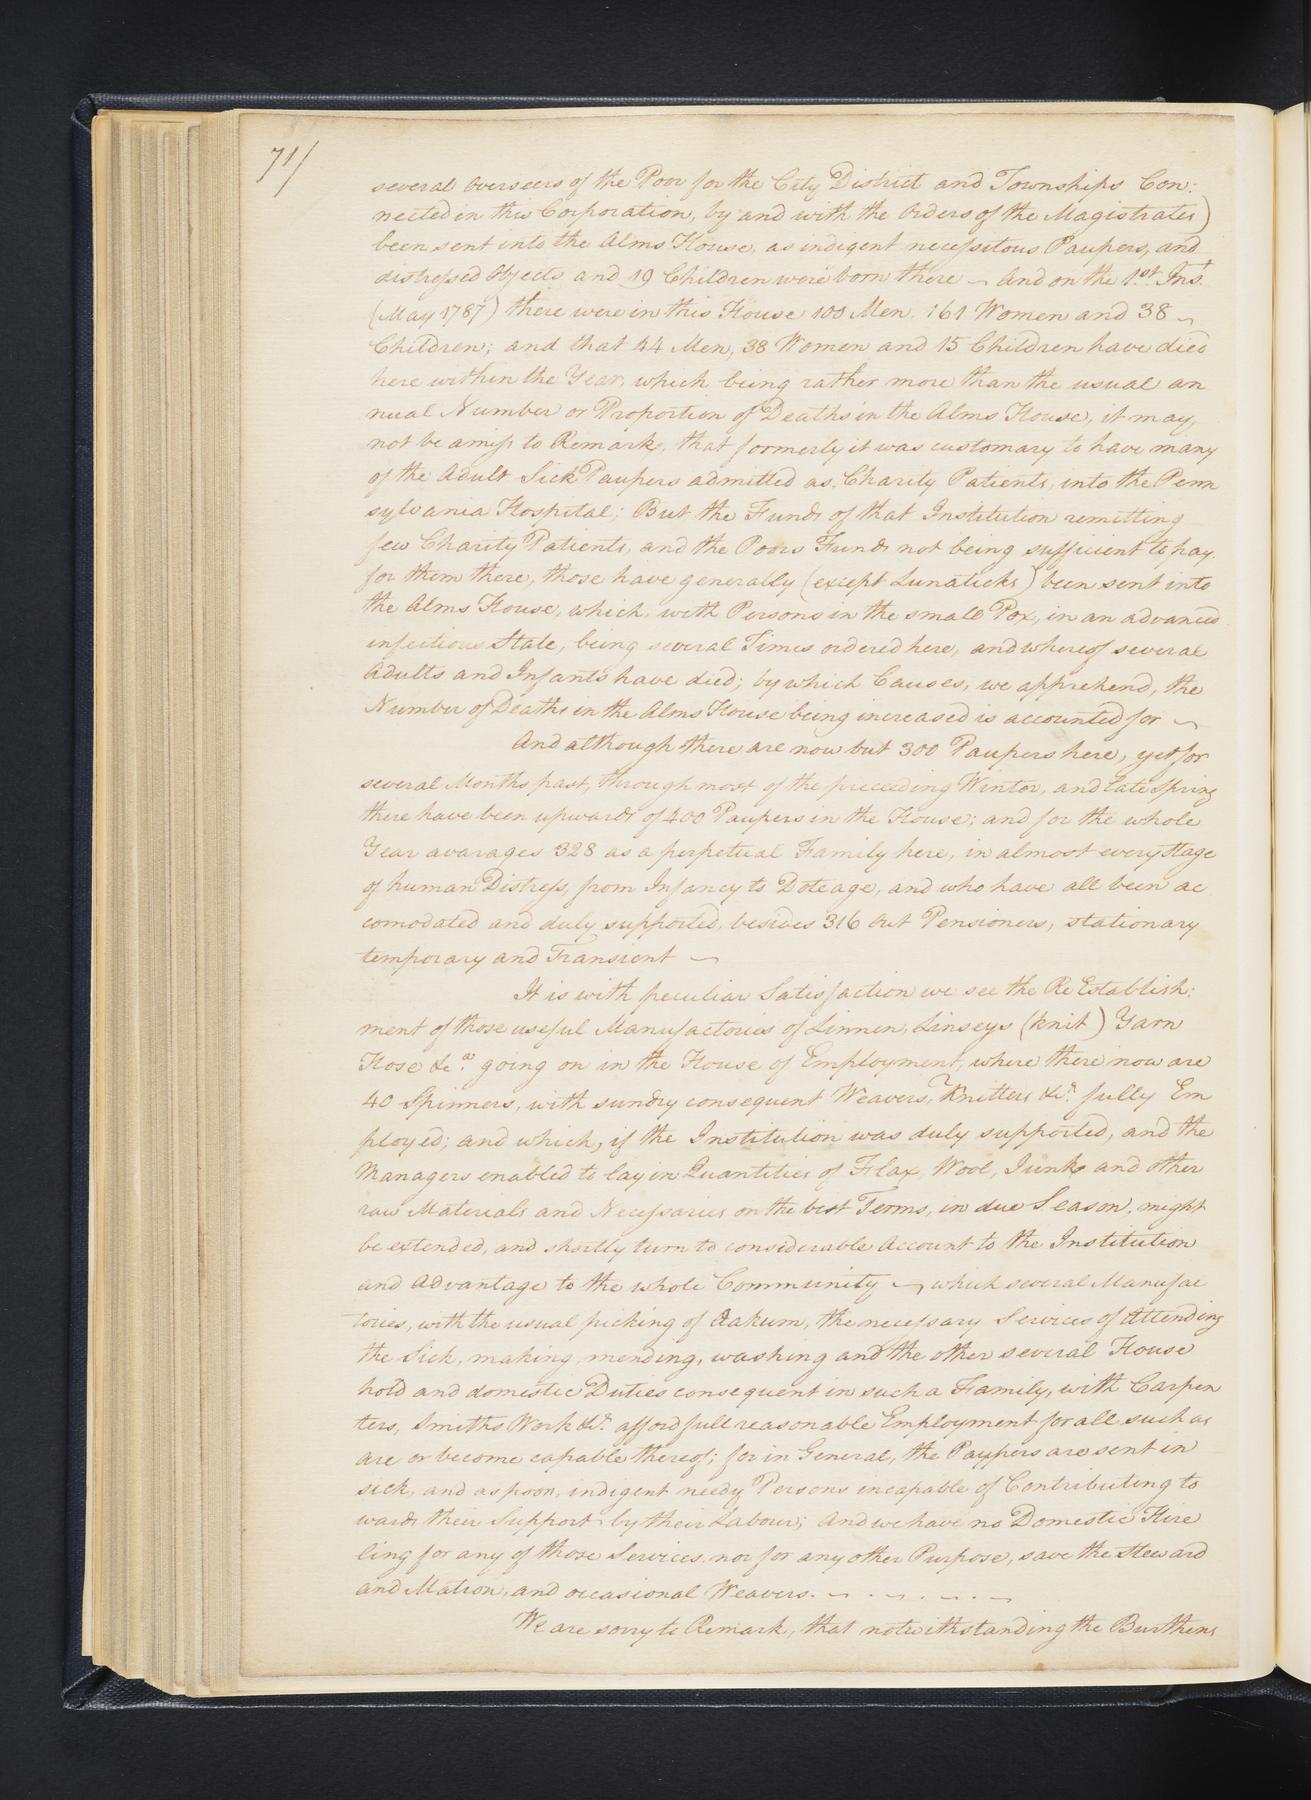 71/
several Overseers of the Poor for the City District and Townships Con:
nected in this Corporation, by and with the Orders of the Magistrates)
been sent into the Alms House, as indigent necessitous Paupers, and
distressed Objects and 19 Children were born there ~ And on the 1st. Inst.
(May 1787) there were in this House 100 Men, 161 Women and 38 ~
Children; and that 44 Men, 38 Women and 15 Children have died
here within the Year, which being rather more than the usual an
nual Number or Proportion of Deaths in the Alms House, it may,
not be amiss to Remark, that formerly it was customary to have many
of the Adult Sick Paupers admitted as Charity Patients, into the Penn
sylvania Hospital; But the Funds of that Institution remitting
few Charity Patients, and the Poors Funds not being sufficient to pay
for them there, those have generally (except Lunaticks) been sent into
the Alms House, which, with Persons in the small Pox, in an advanced
infectious State, being several Times ordered here, and whereof several
Adults and Infants have died; by which Causes, we apprehend, the
Number of Deaths in the Alms House being increased is accounted for ~
And although there are now but 300 Paupers here, yet for
several Months past, through most of the preceeding Winter, and late Spring
there have been upwards of 400 Paupers in the House; and for the whole
Year avarages 328 as a perpetual Family here, in almost every Stage
of human Distress, from Infancy to Doteage, and who have all been ac
comodated and duly supported, besides 316 Out Pensioners, stationary
temporary and Transient ~
It is with peculiar Satisfaction we see the Re Establish:
ment of those useful Manufactories of Linnen, Linseys (knit) Yarn
Hose &ca. going on in the House of Employment, where there now are
40 Spinners, with sundry consequent Weavers, Knitters &ca. fully Em
ployed; and which, if the Institution was duly supported, and the
Managers enabled to lay in Quantities of Flax, Wool, Junk and other
raw Materials and Necessaries on the best Terms, in due Season, might
be extended, and shortly turn to considerable Account to the Institution
and Advantage to the whole Community ~ which several Manufac
tories, with the usual picking of Oakum, the necessary Services of Attending
the Sick, making, mending, washing and the other several House
hold and domestic Duties consequent in such a Family, with Carpen
ters, Smiths Work &ca. afford full reasonable Employment for all such as
are or become capable thereof; for in General, the Paupers are sent in
sick, and as poor, indigent needy Persons incapable of Contributing to
wards their Support by their Labour; And we have no Domestic Hire
ling for any of those Services, nor for any other Purpose, save the Steward
and Matron, and occasional Weavers. ~ . ~ . ~ . ~
We are sorry to Remark, that notwithstanding the Burthens